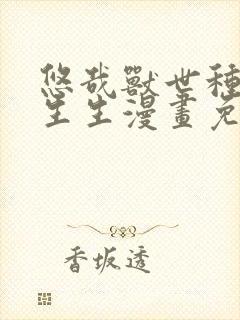 悠哉獸世種
生生漫畫免
香坂透